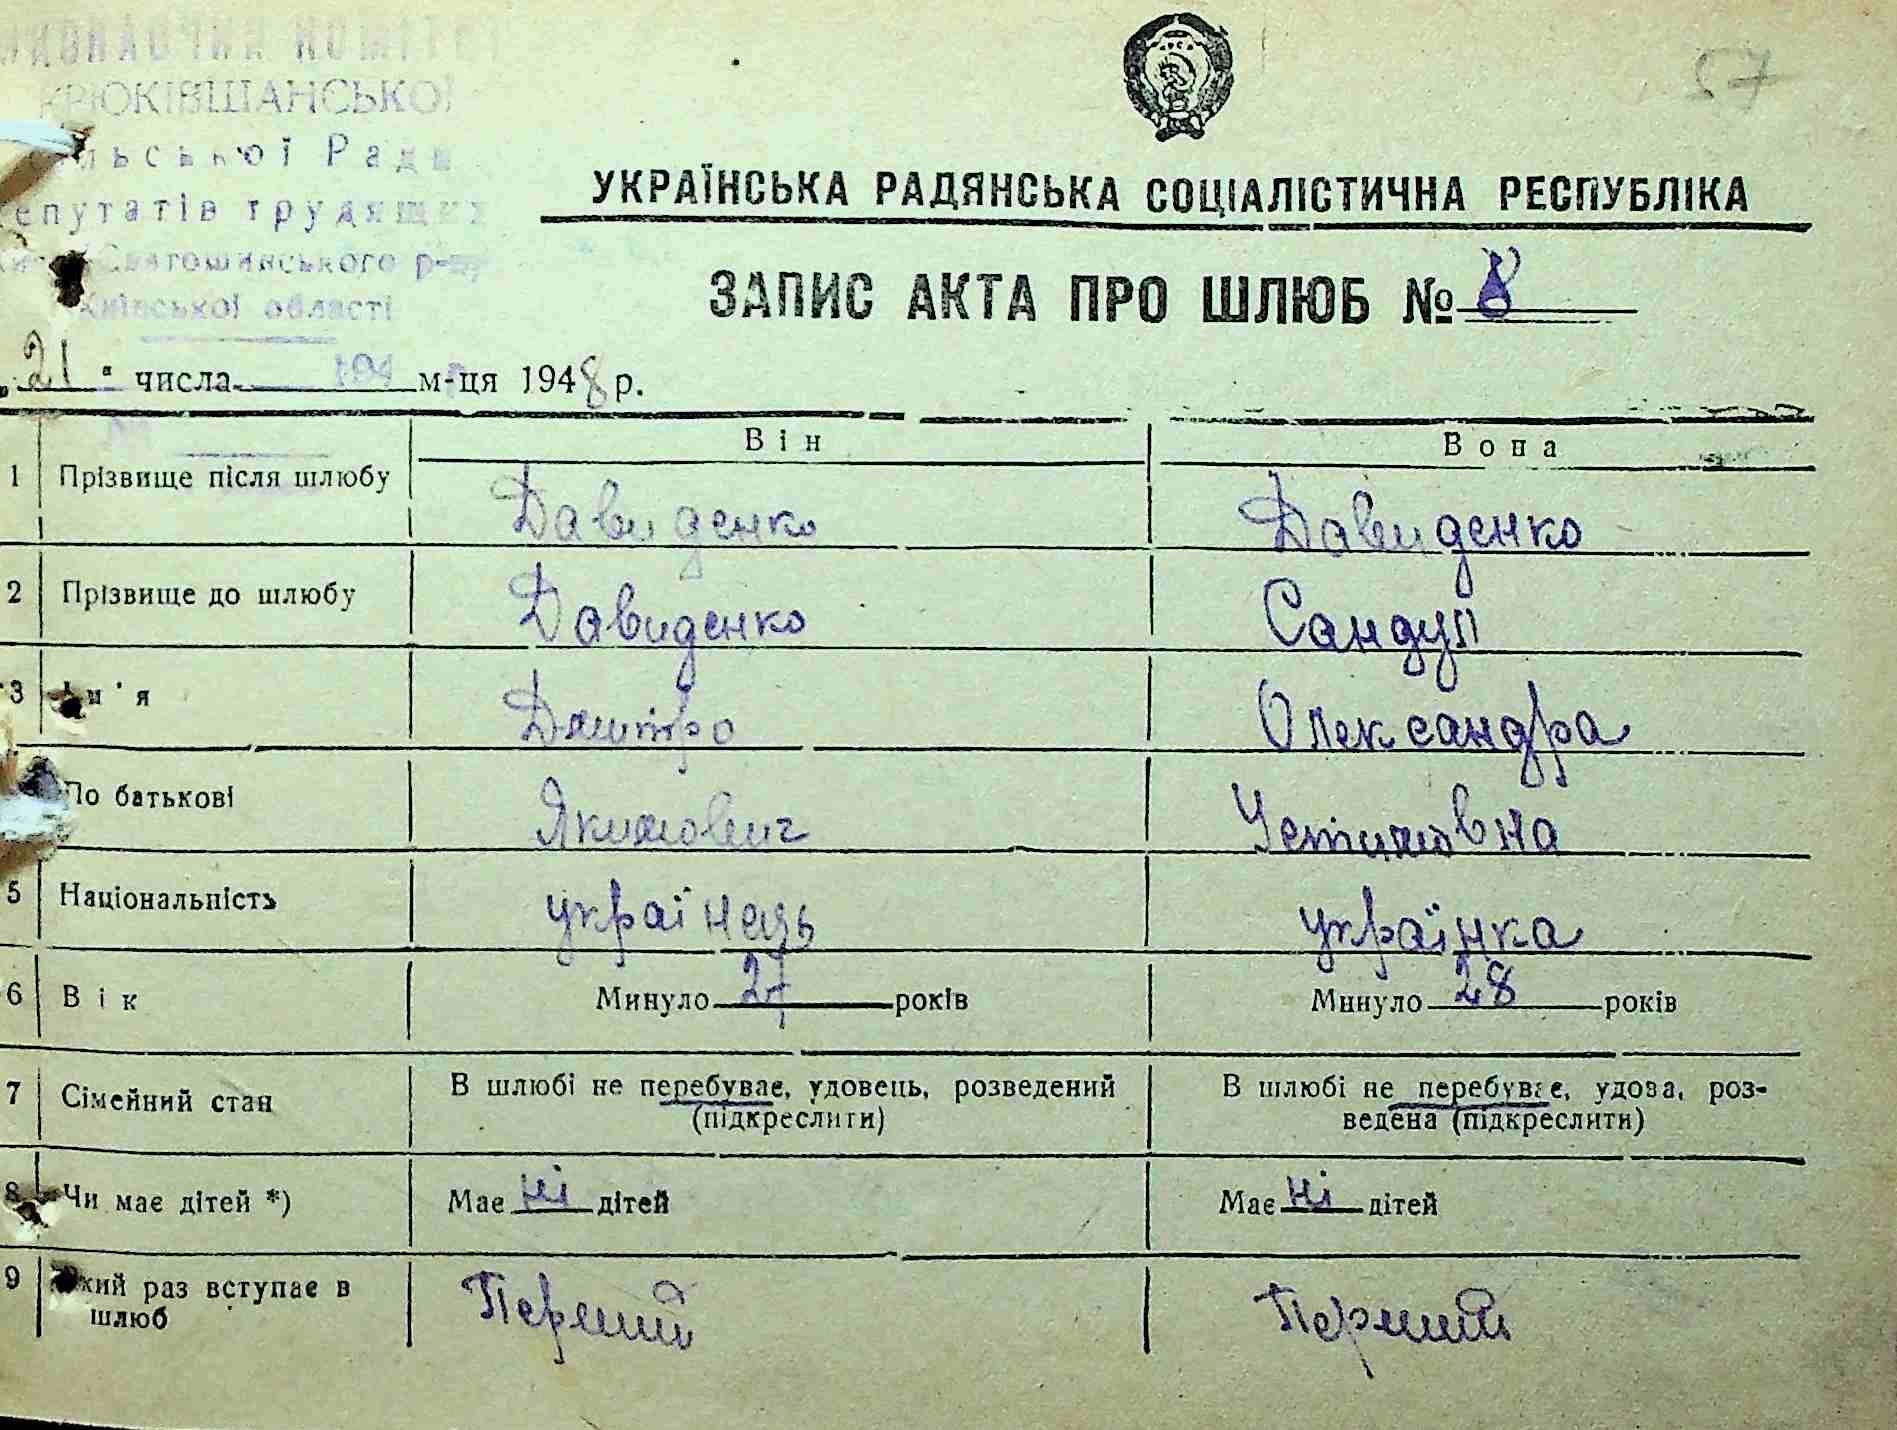 ВИКОНАВЧИЙ КОМІТЕТ
КРЮКІВЩАНСЬКОЇ
сільської Ради
депутатів трудящих
Києво-Святошинського р-ну
Київської області
57
УКРАЇНСЬКА РАДЯНСЬКА СОЦІАЛІСТИЧНА РЕСПУБЛІКА
ЗАПИС АКТА ПРО ШЛЮБ № 8
„21" числа м-ця 1948 р.
Він Вона
1 Прізвище після шлюбу Давиденко Давиденко
2 Прізвище до шлюбу Давиденко Сандул
3 Ім'я Дмитро Олександра
По батькові Якимович Устимовна
5 Національність українець українка
6 Вік Минуло 27 років Минуло 28 років
7 Сімейний стан В шлюбі не перебуває, удовець, розведений В шлюбі не перебуває, удова, роз-
(підкреслити) ведена (підкреслити)
8 Чи має дітей *) Має ні дітей Має ні дітей
9 Який раз вступає в Перший Перший
шлюб